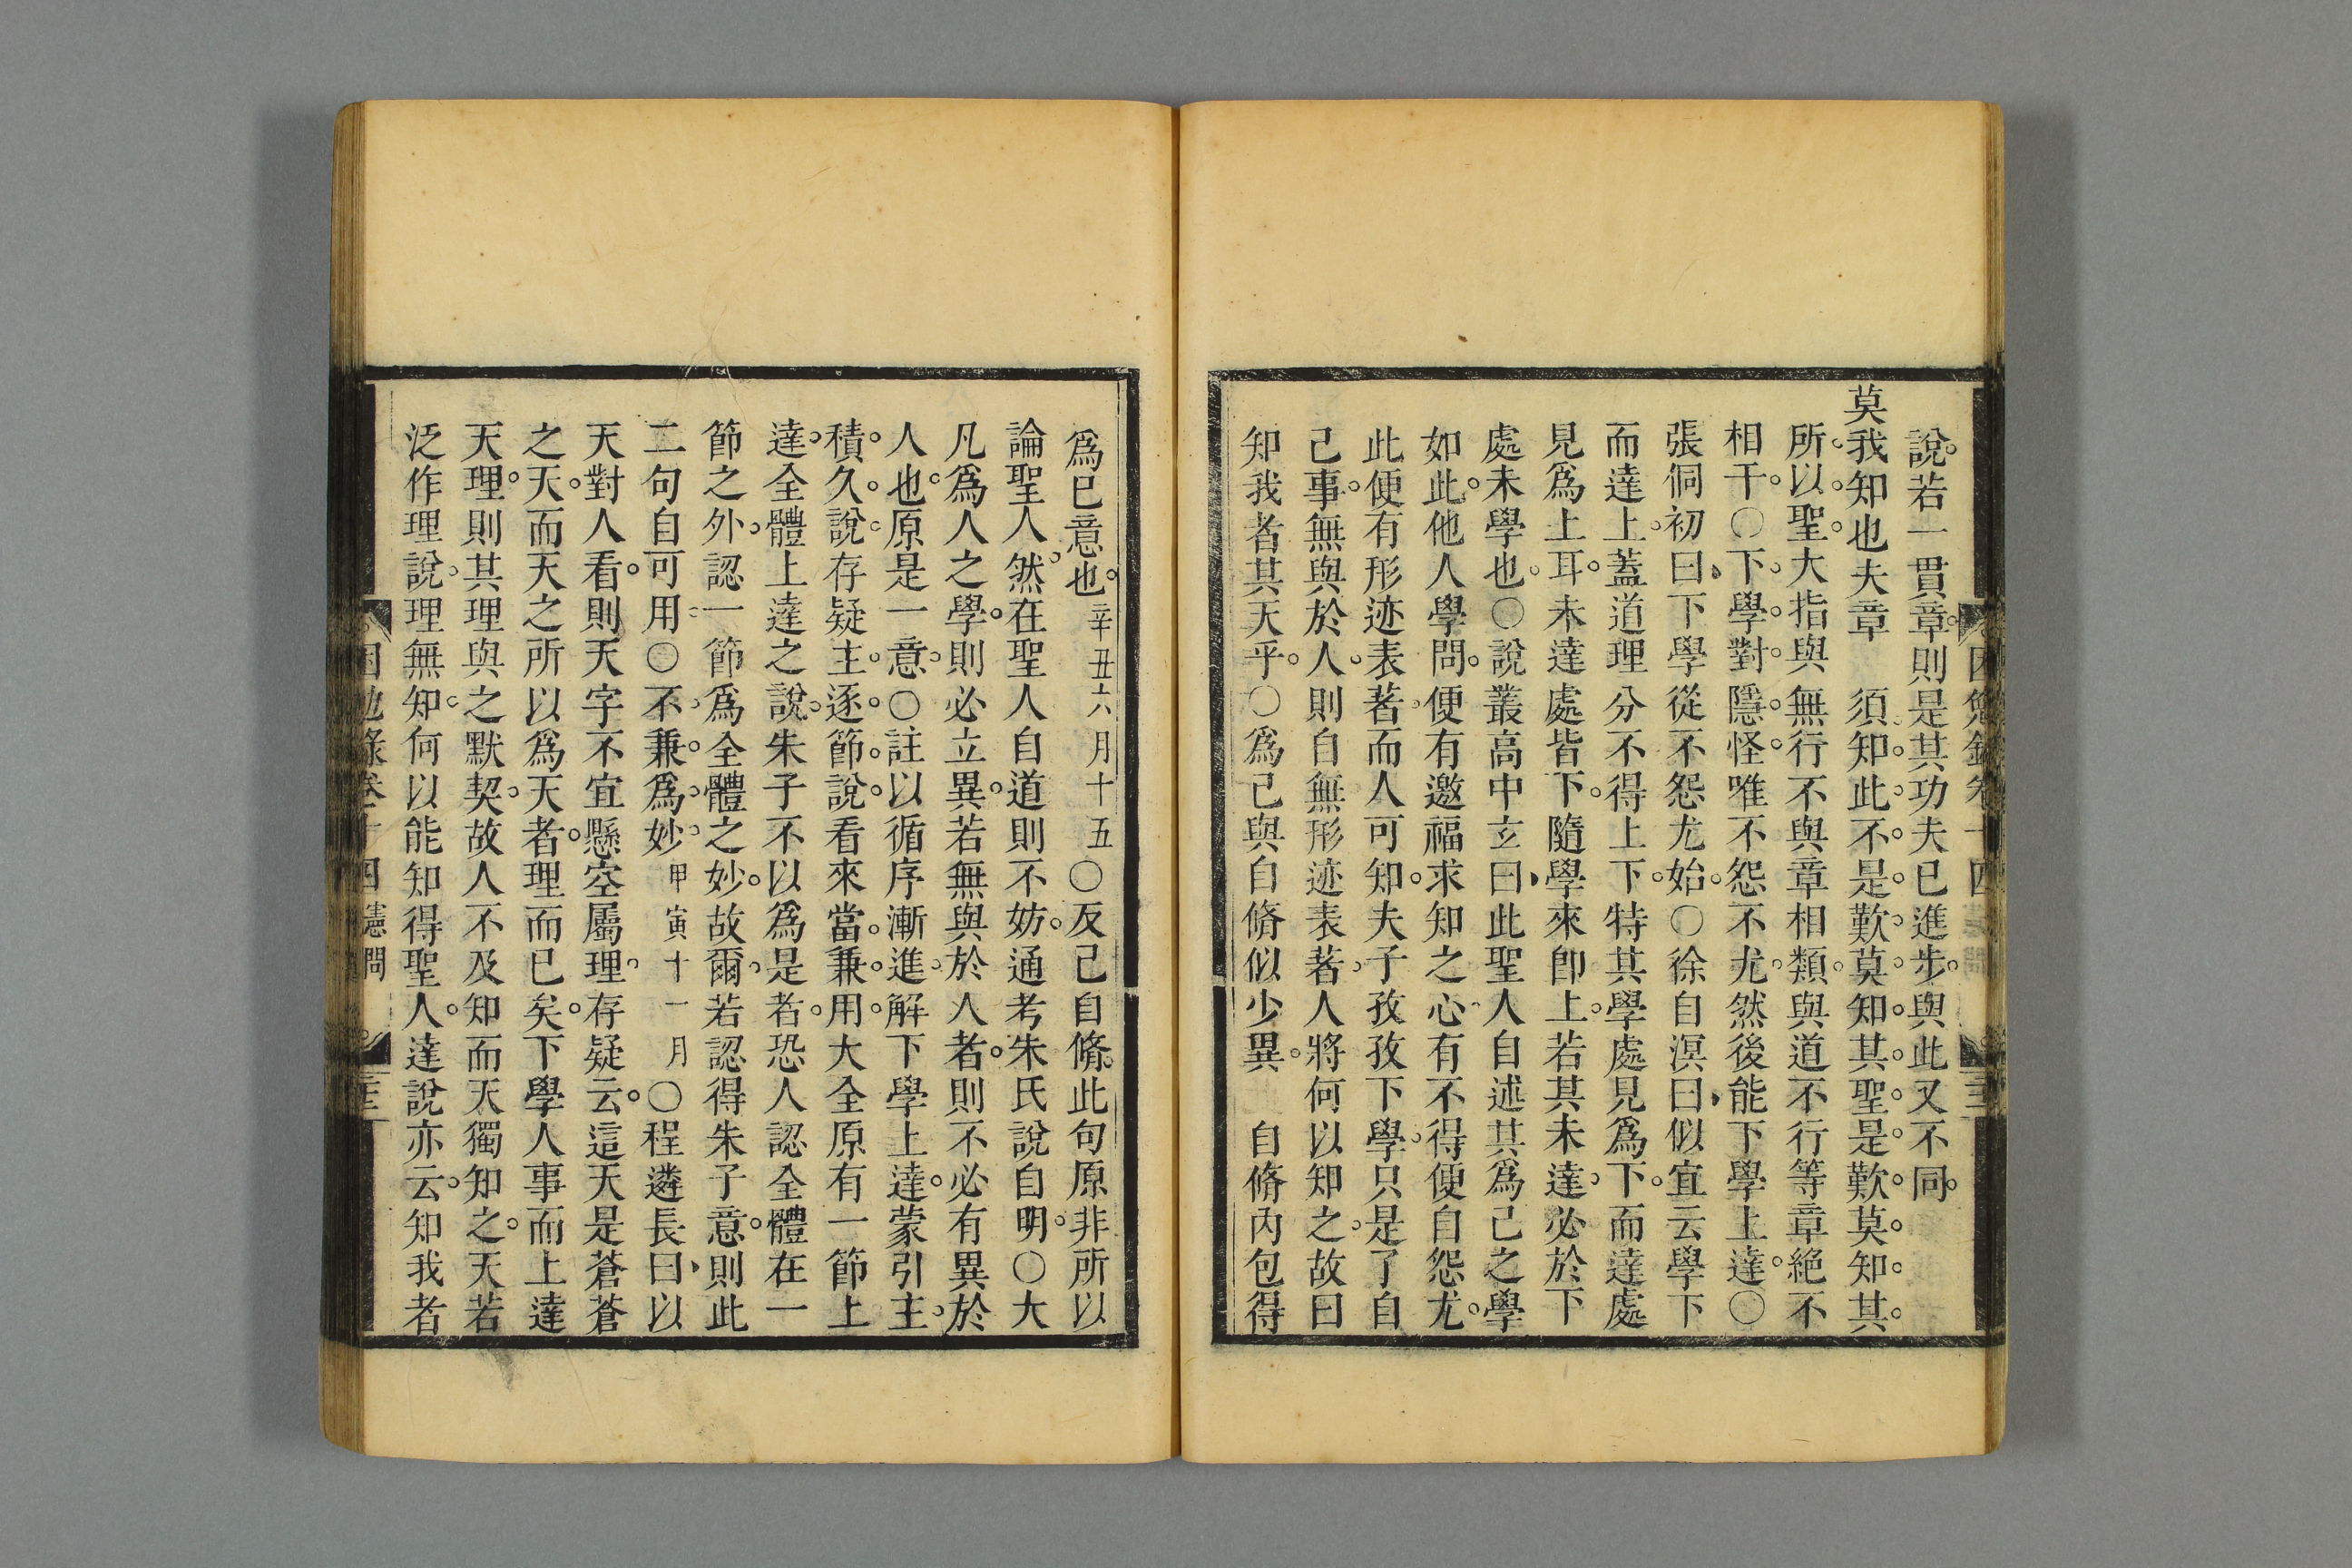 說若一貫章則是其功夫已進步與此又不同
莫我知也夫章　須知此不是歎莫知其聖是歎莫知其
所以聖大指與無行不與章相類與道不行等章絕不
相干〇下學對隱怪唯不怨不尤然後能下學上達〇
張侗初曰下學從不怨尤始〇徐自溟曰似宜云學下
而達上蓋道理分不得上下特其學處見爲下而達處
見爲上耳未達處皆下隨學來卽上若其未達必於下
處未學也〇說叢高中玄曰此聖人自述其爲己之學
如此他人學問便有邀福求知之心有不得便自怨尤
此便有形迹表著而人可知夫子孜孜下學只是了自
己事無與於人則自無形迹表著人將何以知之故曰
知我者其天乎〇爲已與自脩似少異　自脩內包得
爲巳意也辛丑六月十五〇反己自脩此句原非所以
論聖人然在聖人自道則不妨通考朱氏說自明〇大
凡爲人之學則必立異若無與於人者則不必有異於
人也原是一意〇註以循序漸進解下學上達蒙引主
積久說存疑主逐節說看來當兼用大全原有一節上
達全體上達之說朱子不以爲是者恐人認全體在一
節之外認一節爲全體之妙故爾若認得朱子意則此
二句自可用〇不兼爲妙甲寅十一月〇程遴長曰以
天對人看則天字不宜懸空屬理存疑云這天是蒼蒼
之天而天之所以爲天者理而已矣下學人事而上達
天理則其理與之默契故人不及知而天獨知之天若
泛作理說理無知何以能知得聖人達說亦云知我者
困勉錄卷十四 憲問